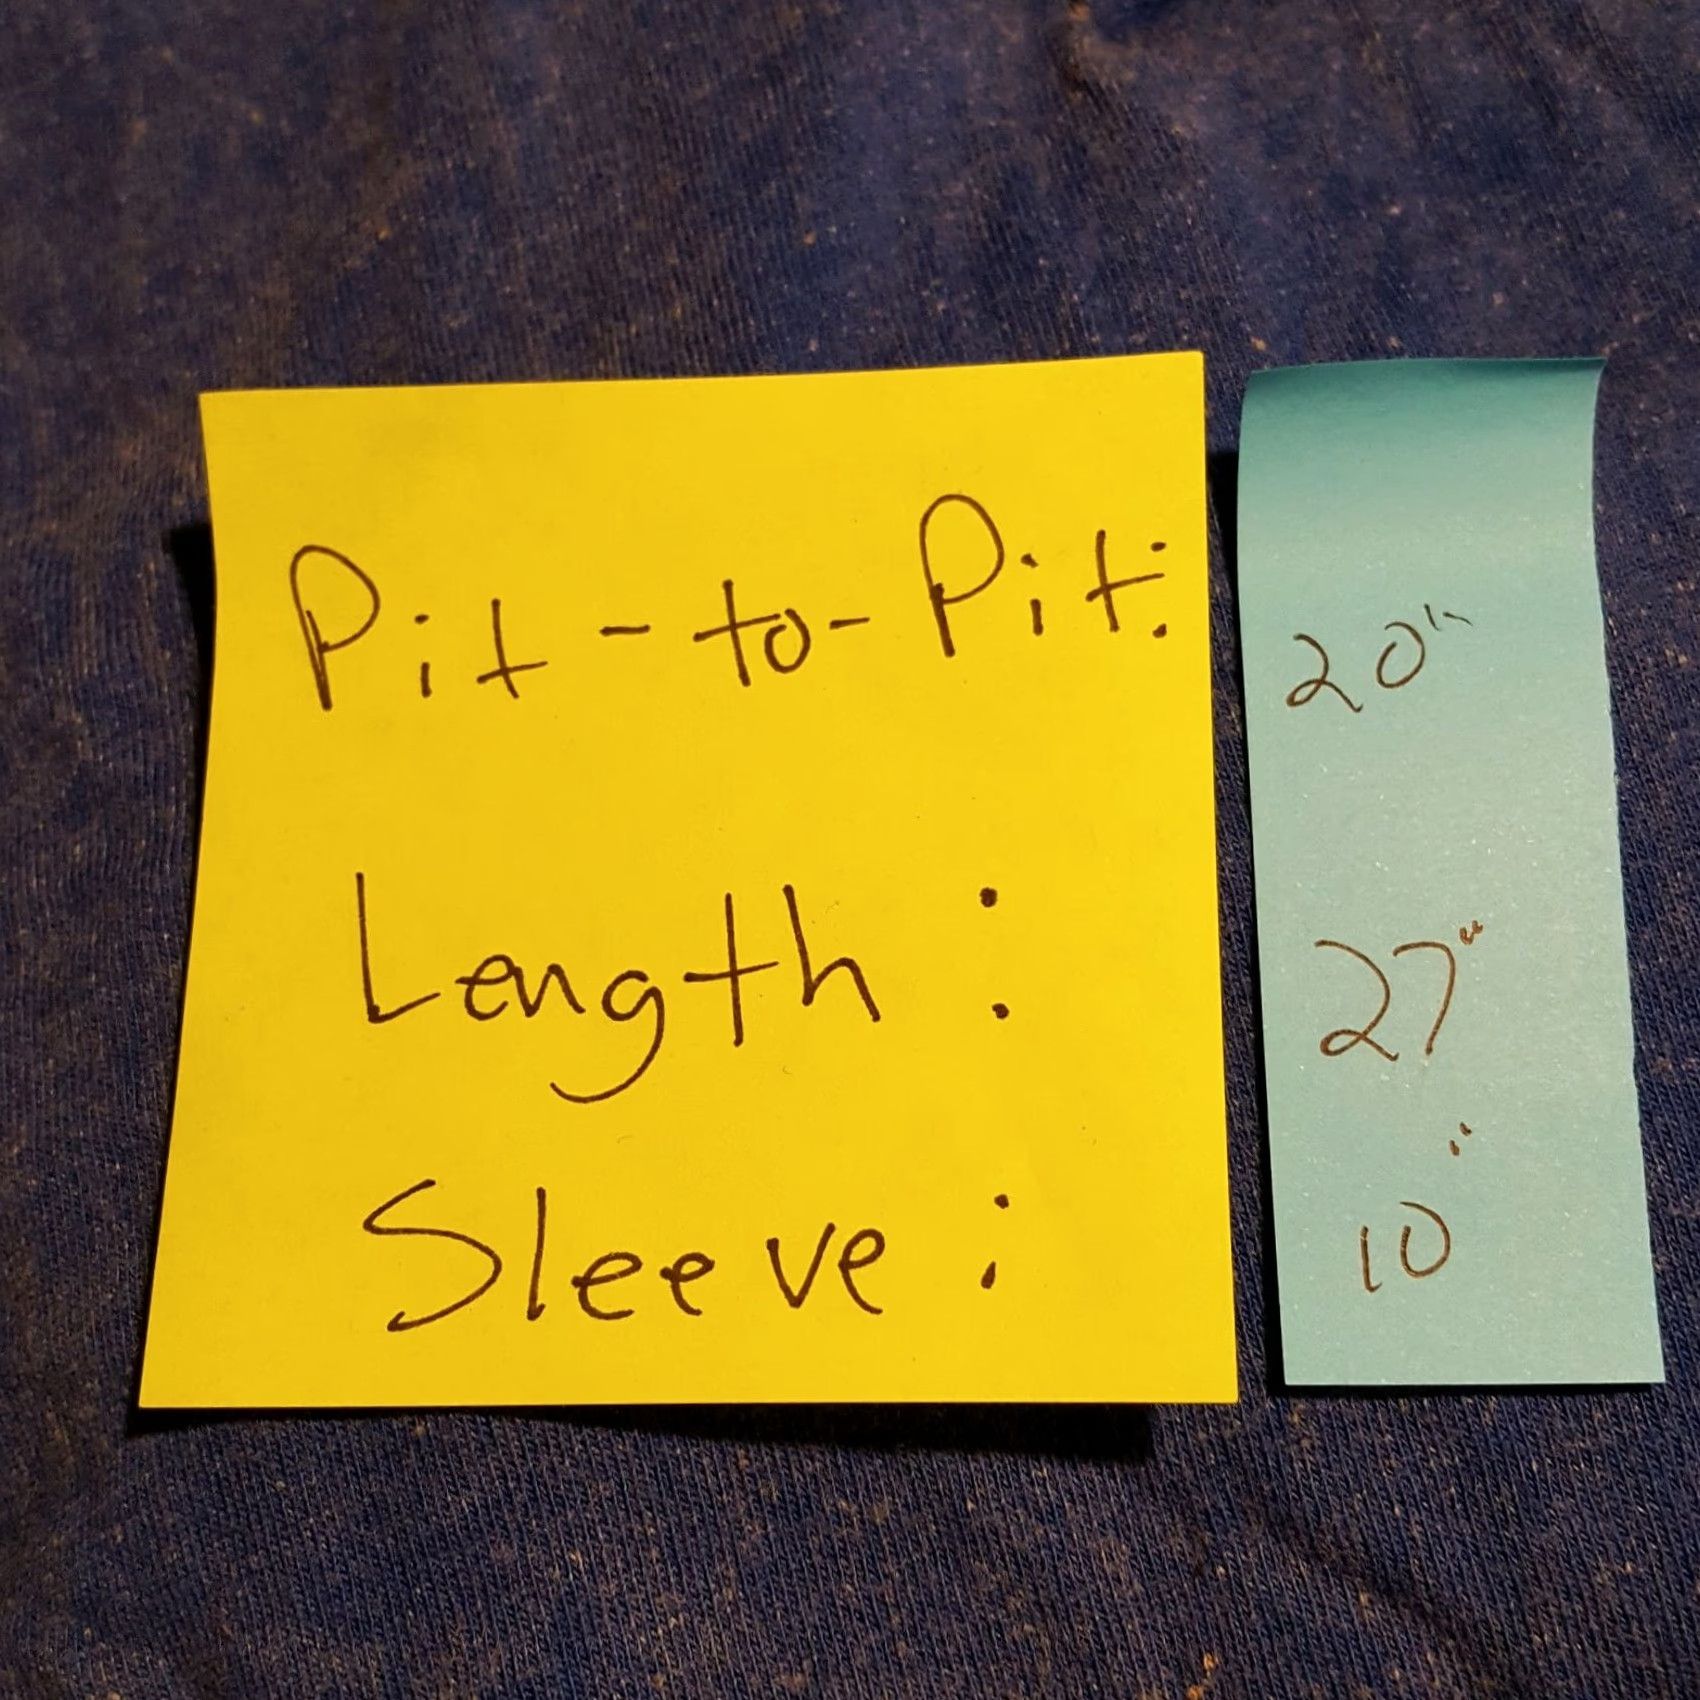 Pit-to-Pit: 20"
Length: 27"
Sleeve: 10"